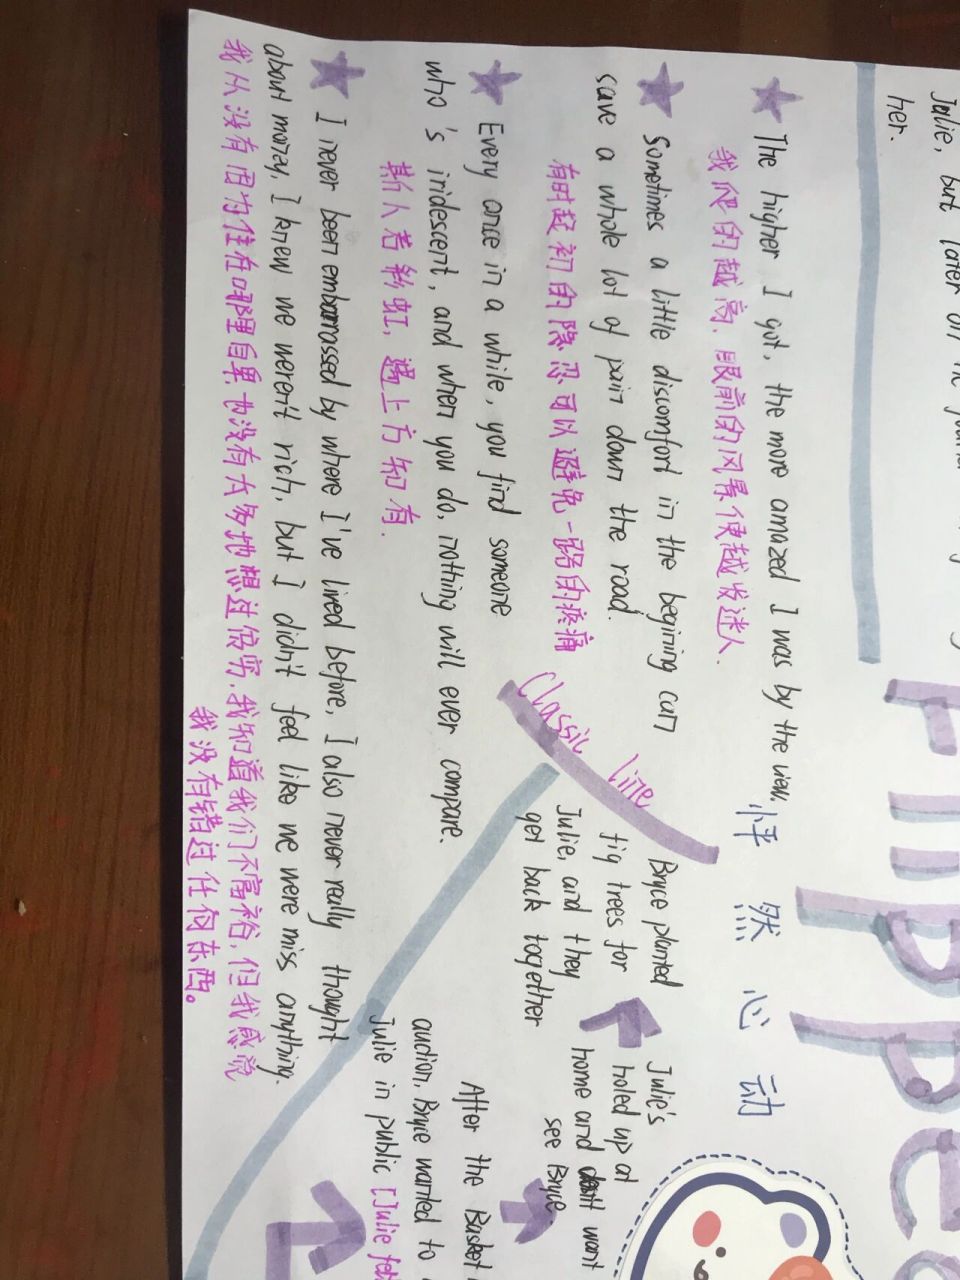 Julie, but later on
her.
Flipped
怦然心动
The higher I got, the more amazed I was by the view.
我爬的越高，眼前的风景便越发迷人.
Sometimes a little discomfort in the begining can
save a whole lot of pain down the road.
有时起初的隐忍可以避免一路的疼痛
Every once in a while, you find someone
who's iridescent, and when you do, nothing will ever compare.
斯人若彩虹，遇上方知有.
I never been embarrassed by where I've lived before, I also never really thought
about money, I knew we weren't rich, but I didn't feel like we were miss anything.
我从没有因为住在哪里自卑也没有太多地想过贫穷，我知道我们不富裕，但我感觉
我没有错过任何东西。
Classic line
Bryce planted
fig trees for
Julie, and they
get back together
Julie's
holed up at
home and want
see Bryce.
After the Basket
auction, Bryce wanted to
Julie in public [Julie